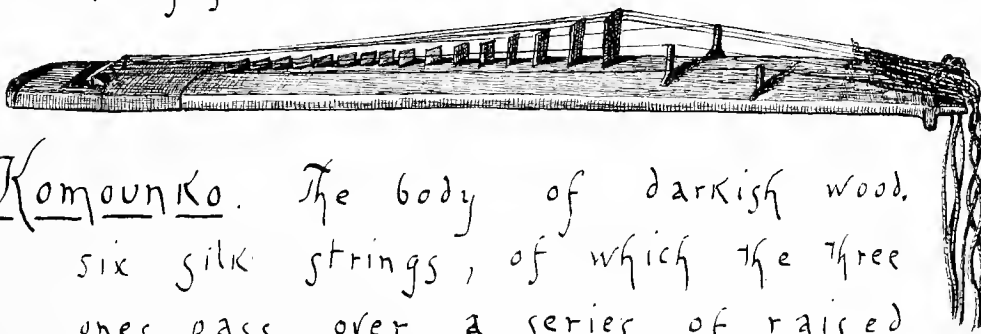 Komounko. The body of darkish wood.
six silk strings, of which the three
ones pass over a series of raised